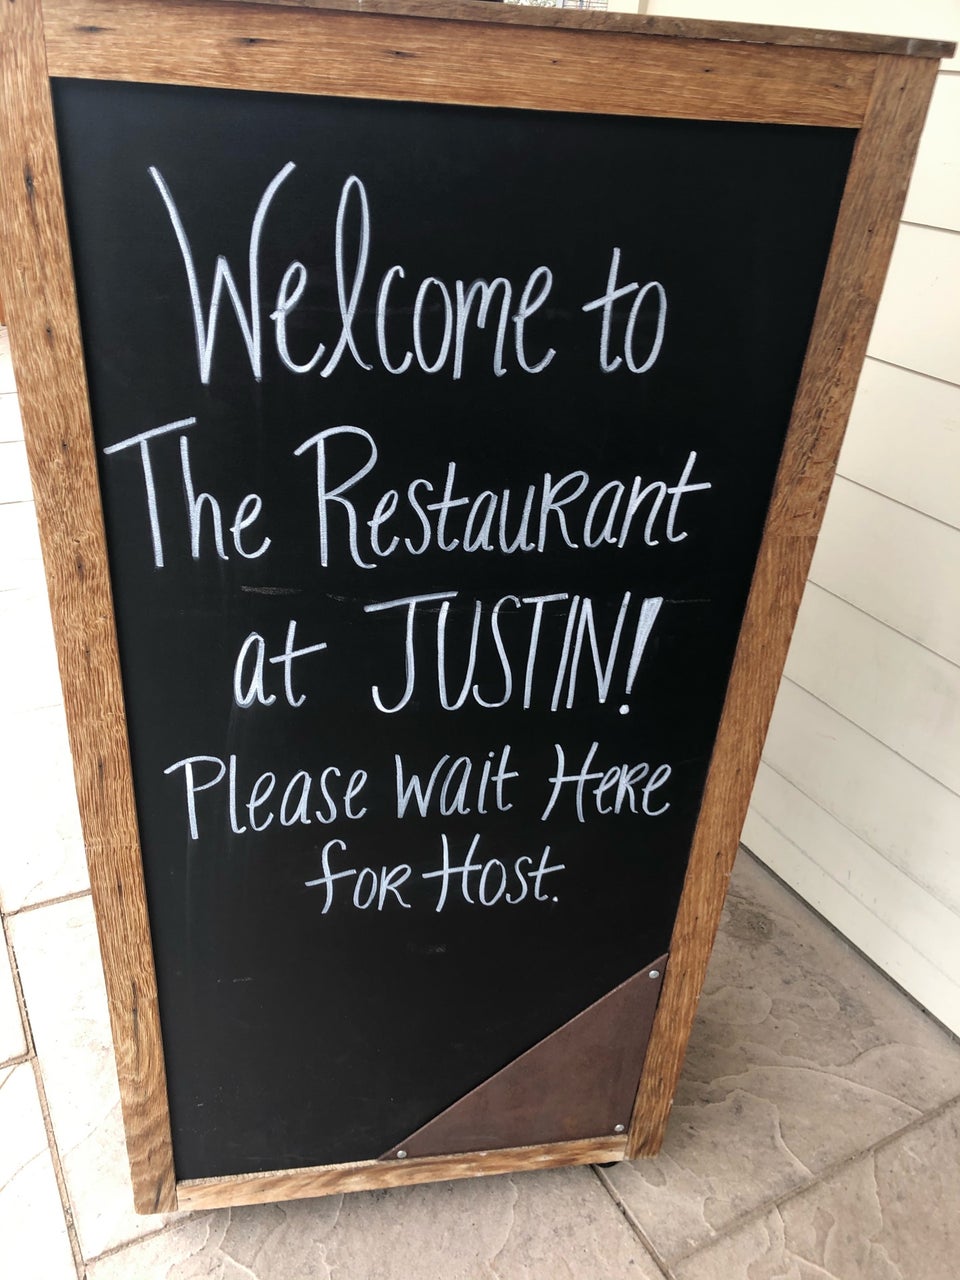 Welcome to
The Restaurant
at JUSTIN!
Please wait Here
for Host.